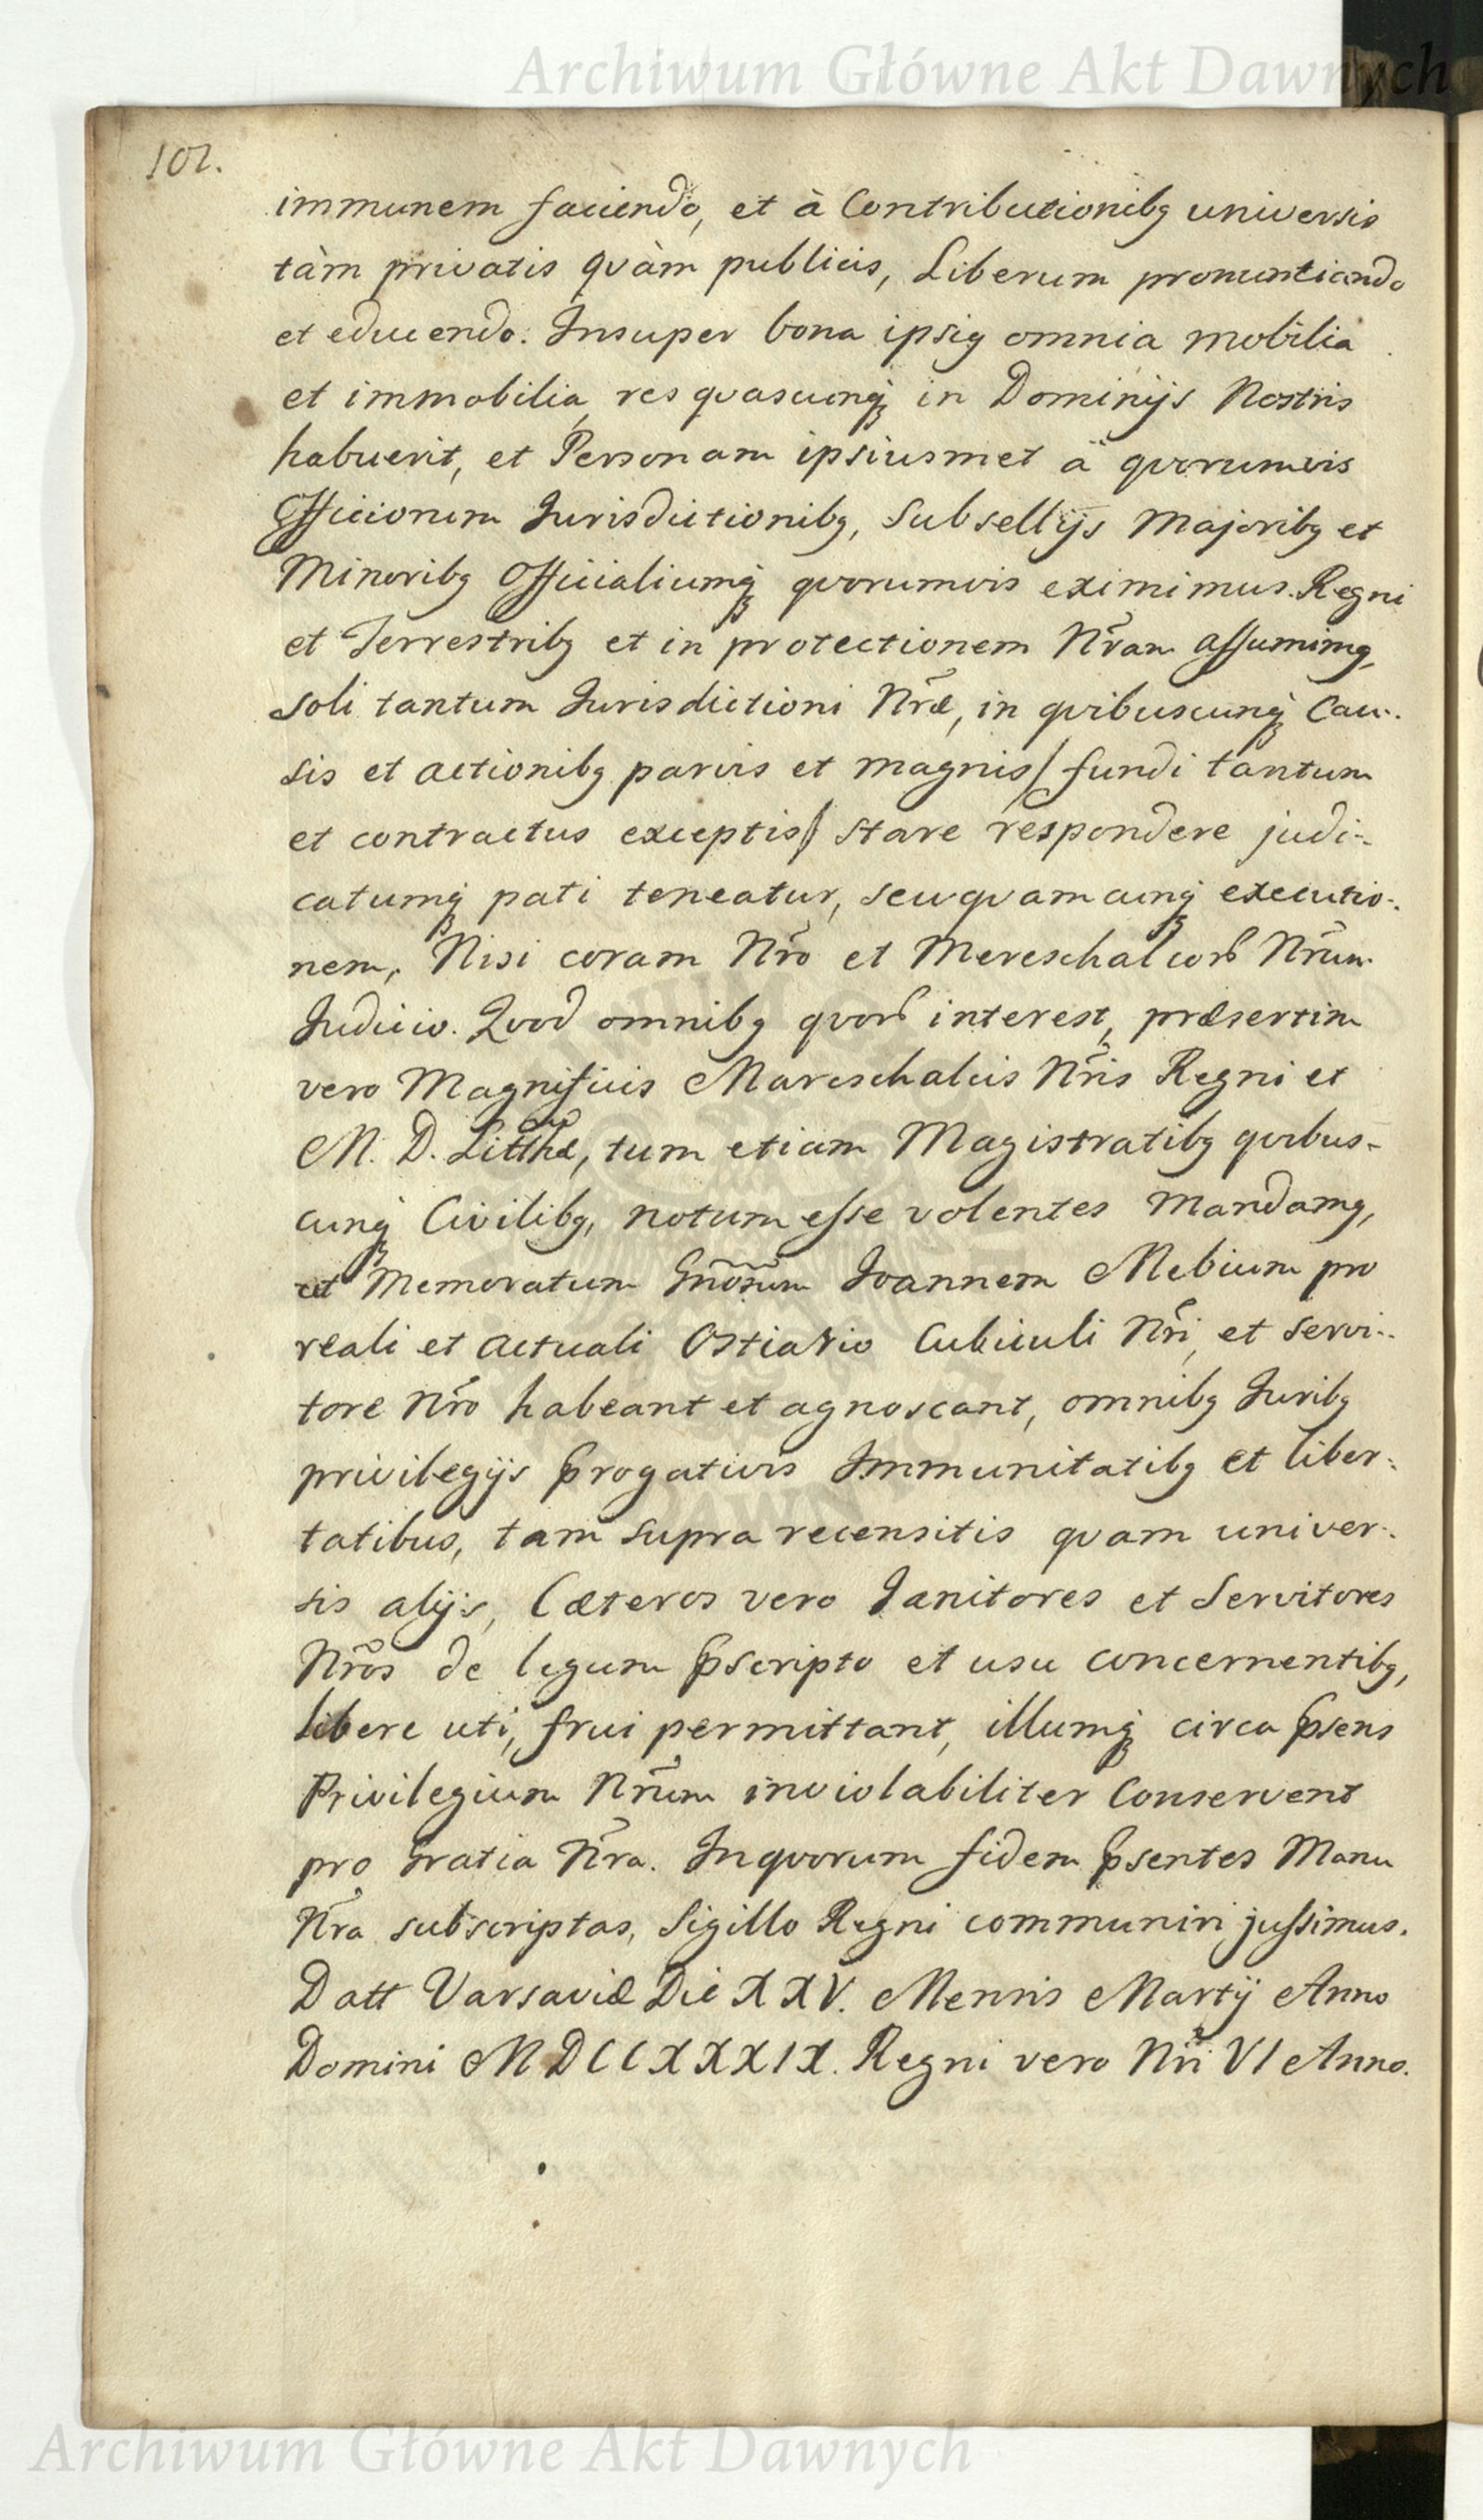 Archiwum Główne Akt Dawnych
102.
immunem faciendo, et à Contributionibq universis
tàm privatis quàm publicis, Liberum pronuntiando
et educendo. Insuper bona ipsiq omnia mobilia
et immobilia, res quascunq in Dominijs Nostris
habuerit, et Personam ipsiusmet à quorumvis
Officiorum Jurisdictionibq, Subsellijs Majoribq et
Minoribq Officialiumq quorumvis eximimus. Regni
et Terrestribq et in protectionem Nr̃am assumimq,
soli tantum Jurisdictioni Nr̃æ, in quibuscunq Cau-
sis et actionibq parvis et magnis / fundi tantum
et contractus exceptis / stare respondere judi-
catumq pati teneatur, seu quamcunq executio-
nem, Nisi coram Nr̃o et Mereschalcorũ Nr̃um
Judicio. Quod omnibq quorũ interest, præsertim
vero Magnificis Mareschalcis Nr̃is Regni et
M. D. Litthæ, tum etiam Magistratibq quibus-
cunq Civilibq, notum esse volentes Mandamq,
ut Memoratum Gñosum Joannem Mebium pro
reali et actuali Ostiario Cubiculi Nr̃i, et servi-
tore Nr̃o habeant et agnoscant, omnibq Juribq
privilegijs p̃rogativis Immunitatibq et liber-
tatibus, tam supra recensitis quam univer-
sis alijs, Cæteros vero Janitores et Servitores
Nr̃os de legum p̃scripto et usu concernentibq,
libere uti, frui permittant, illumq circa p̃sens
Privilegium Nr̃um inviolabiliter Conservent
pro Gratia Nr̃a. In quorum fidem p̃sentes Manu
Nr̃a subscriptas, Sigillo Regni communiri jussimus.
Datt Varsaviæ Die XXV. Mensis Martij Anno
Domini MDCCXXXIX. Regni vero Nr̃i VI Anno.
Archiwum Główne Akt Dawnych